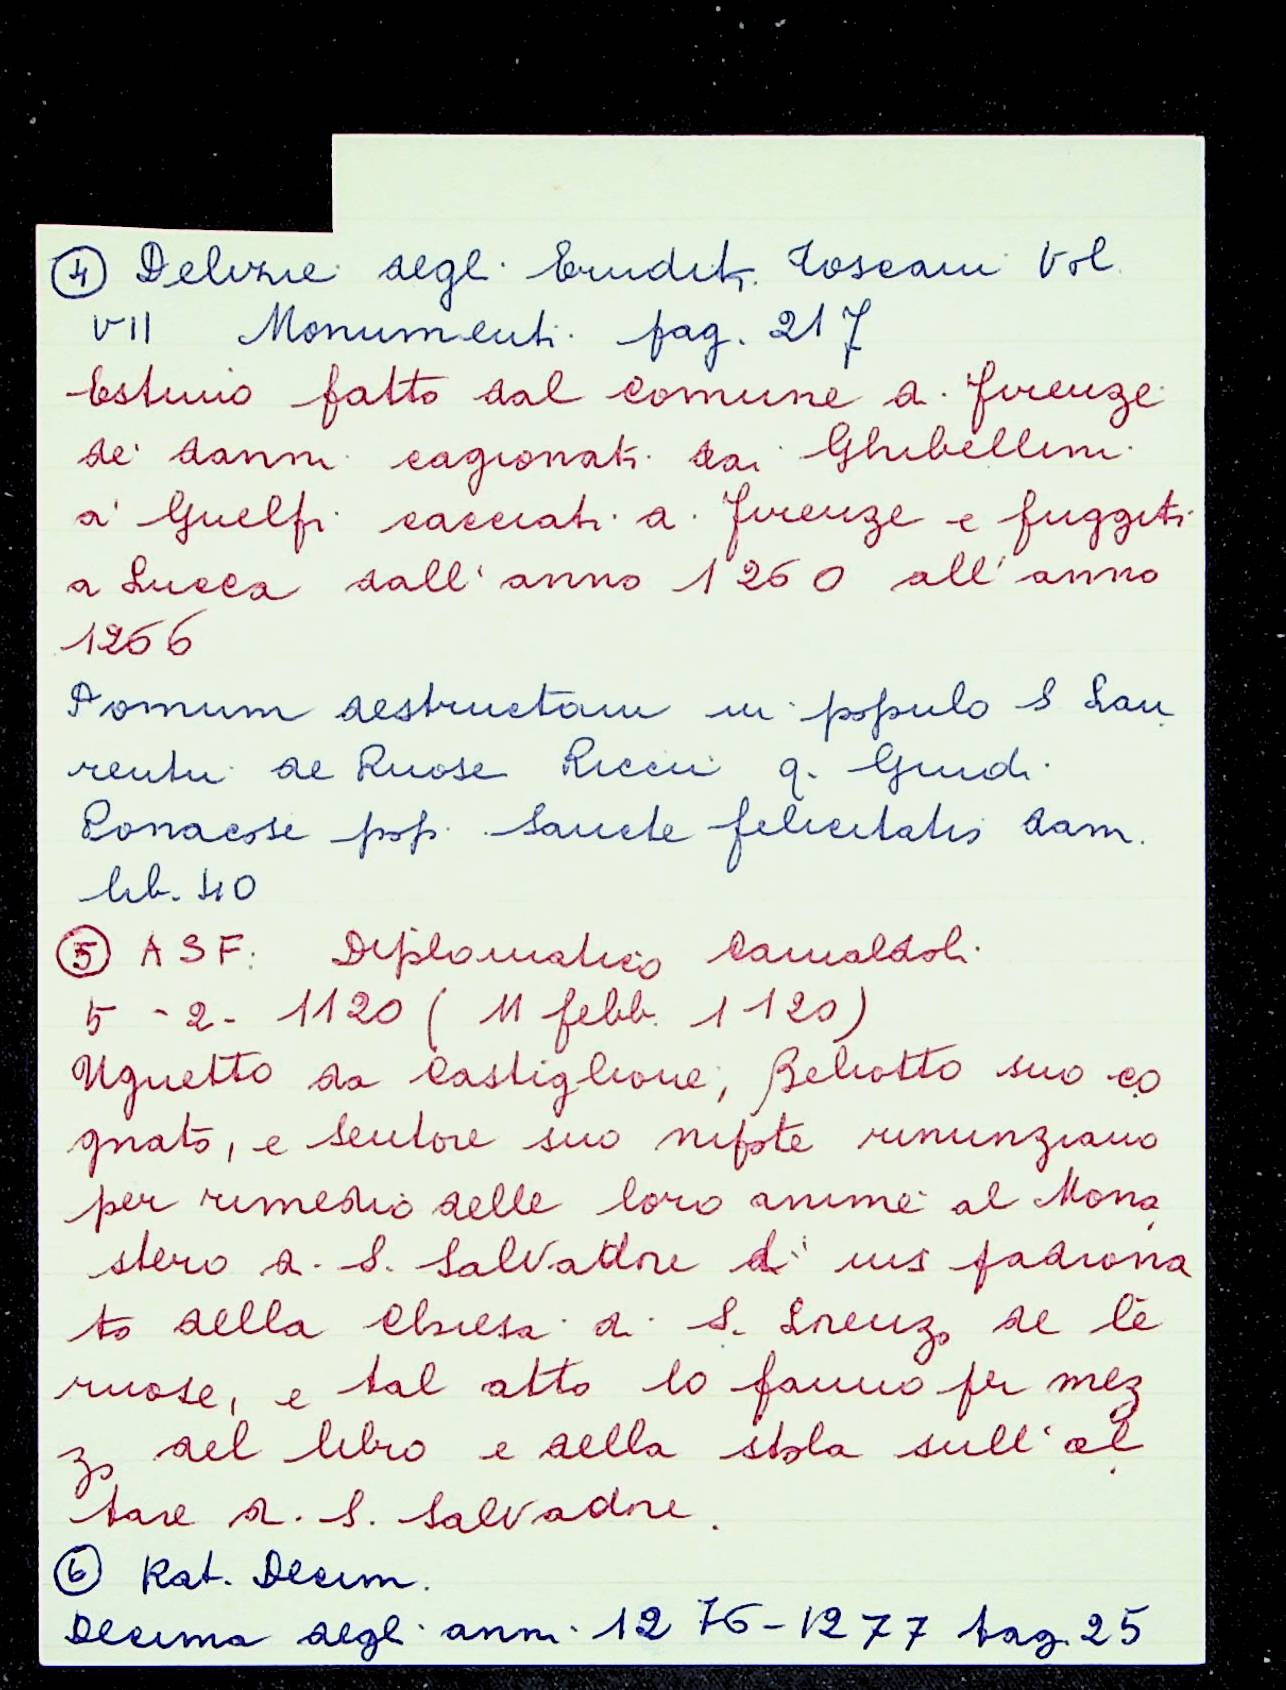 ④ Delizie degli Eruditi Toscani Vol.
VII Monumenti pag. 217
Estimo fatto dal comune di Firenze
de' danni cagionati dai Ghibellini
a' Guelfi cacciati di Firenze e fuggiti
a Lucca dall'anno 1260 all'anno
1266
Domum destructam in populo S Lau
rentii de Ruose Riccii q. Guidi
Bonacose pop. Sancte felicitatis dam.
lib. 40
⑤ ASF: Diplomatico Camaldoli
5 - 2 - 1120 ( 11 febb. 1120)
Uguetto da Castiglione, Beliotto suo co
gnato, e Sentore suo nipote rinunziano
per rimedio delle loro anime al Mona
stero di S. Salvadore di ius padrona
to della Chiesa di S. Lorenzo de le
ruose, e tal atto lo fanno per mez
zo del libro e della stola sull'al
tare di S. Salvadore.
⑥ Rat. Decim.
Decima degli anni 1276-1277 tag. 25